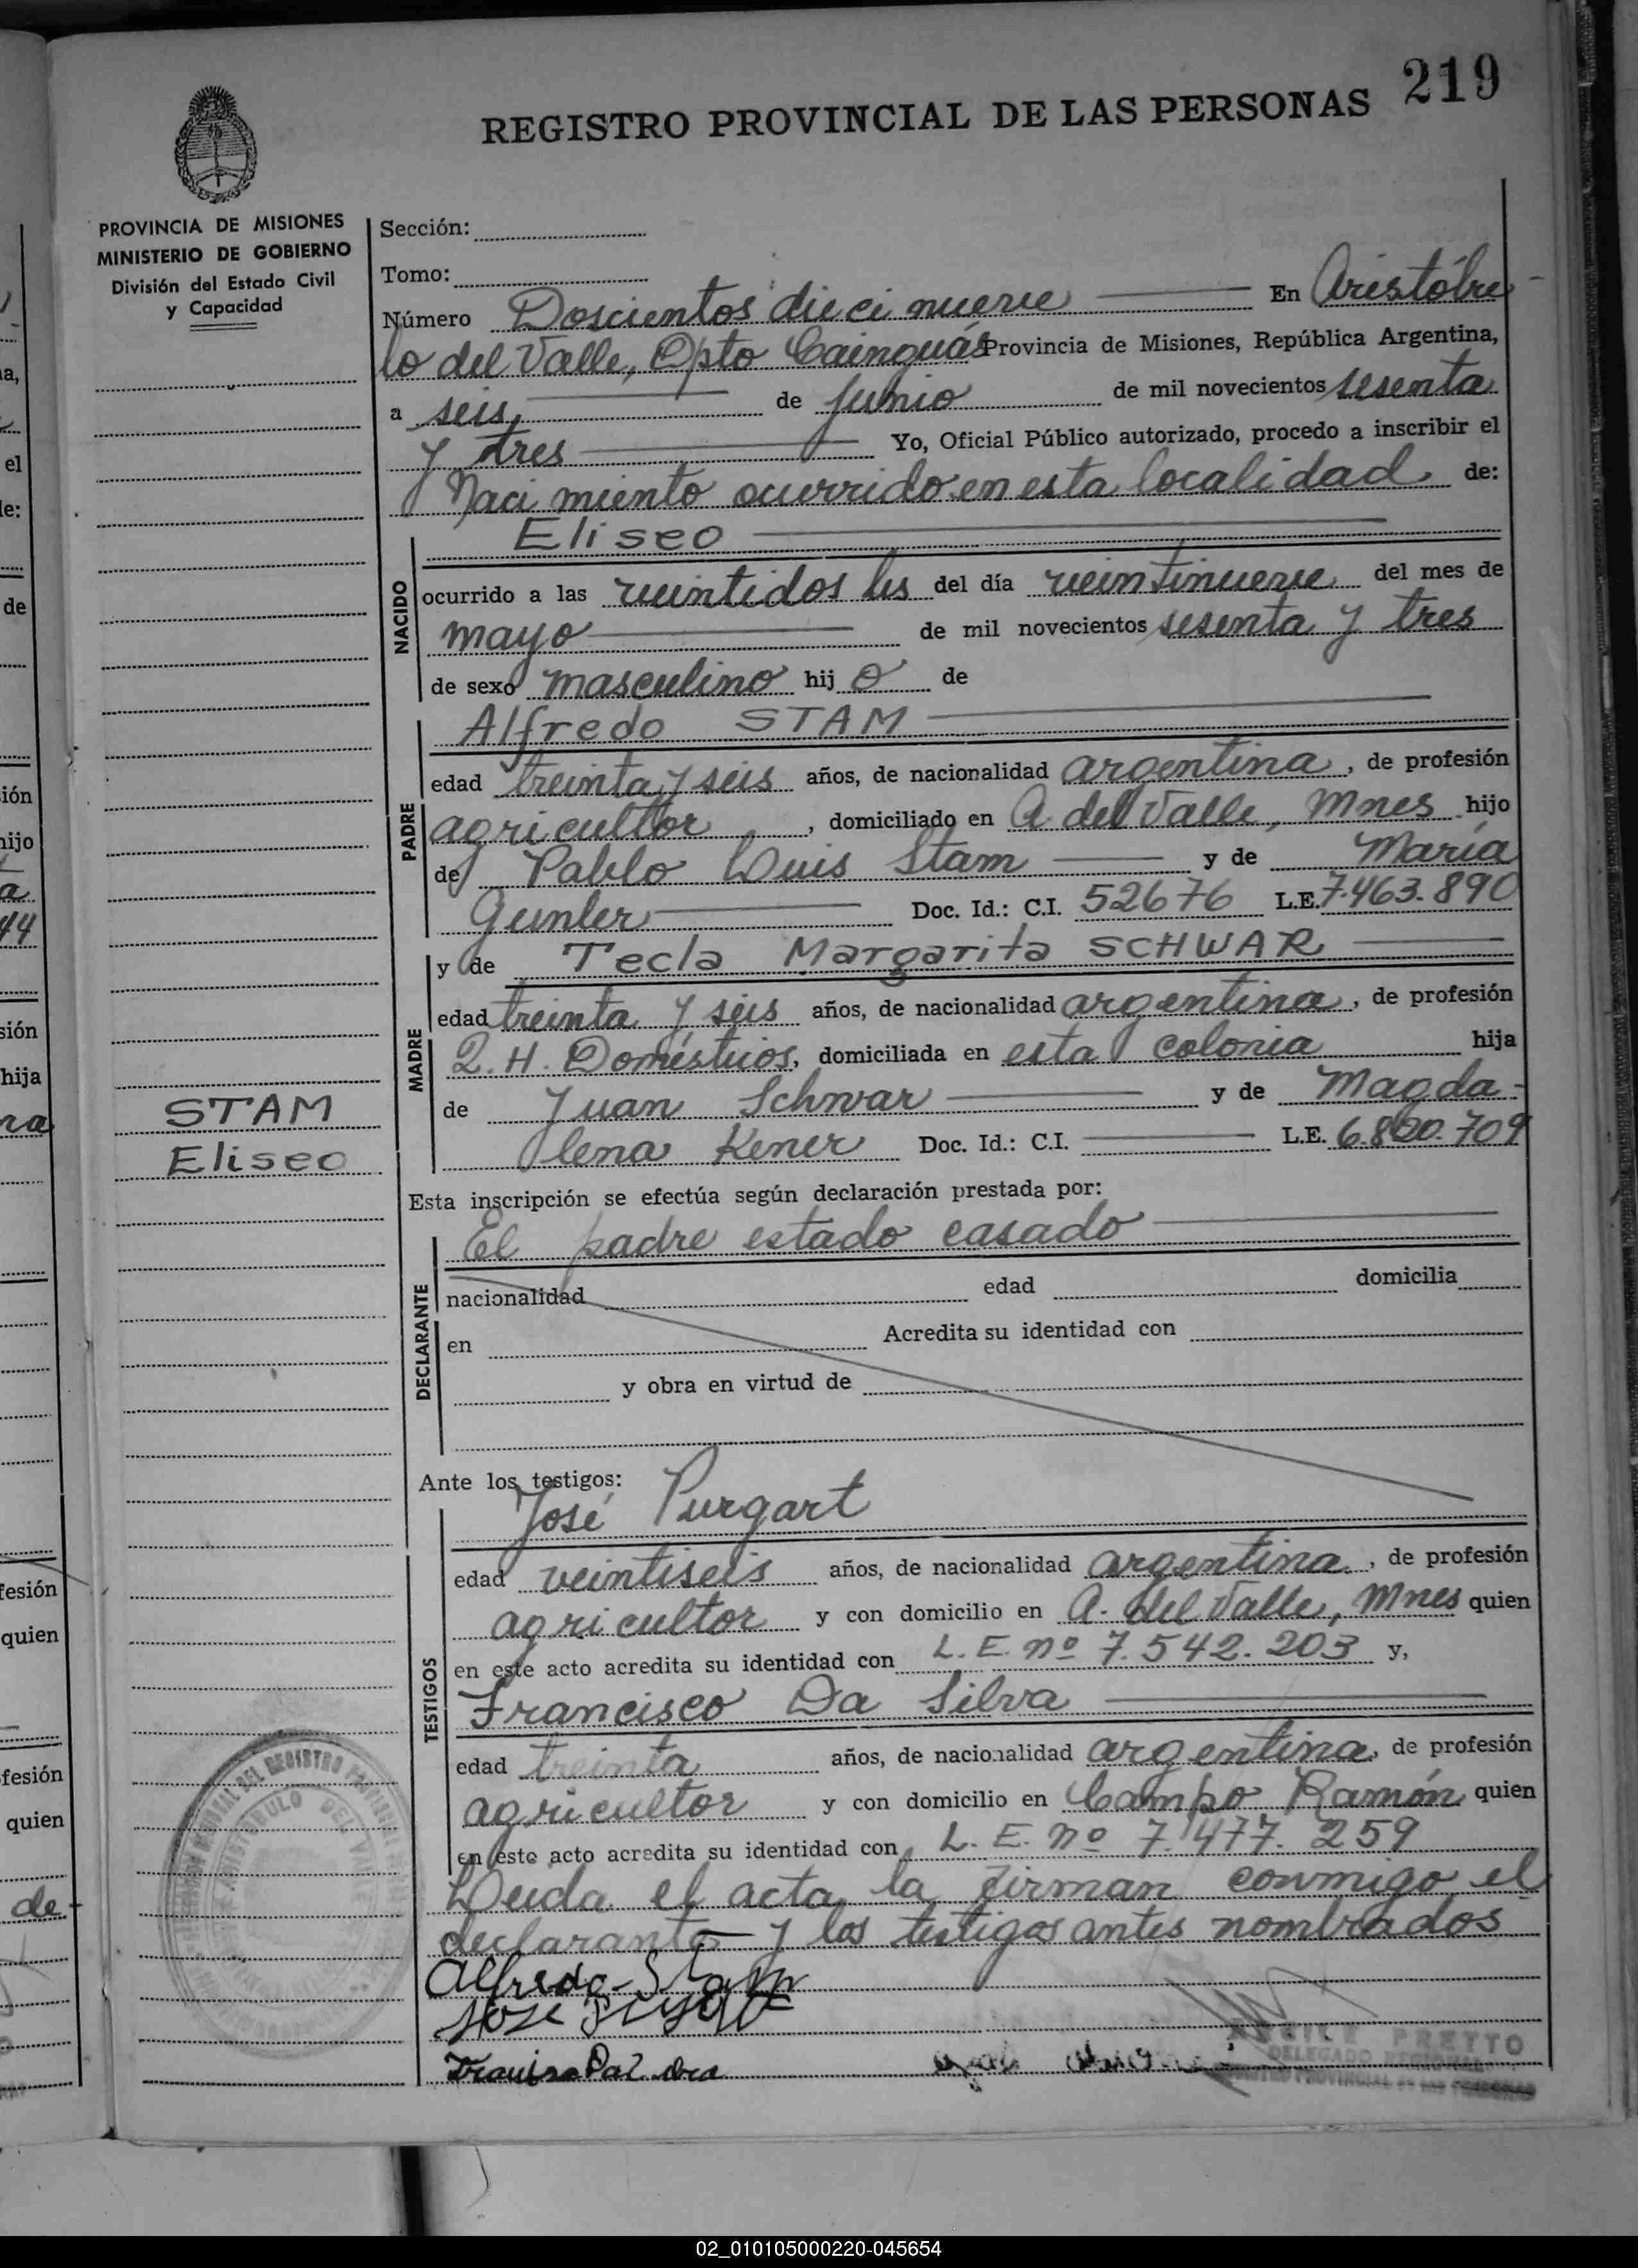 219
REGISTRO PROVINCIAL DE LAS PERSONAS
PROVINCIA DE MISIONES
MINISTERIO DE GOBIERNO
División del Estado Civil
y Capacidad
Sección:
Tomo:
Número Doscientos dieci nueve En Aristóbu
lo del Valle, Dpto Cainguás Provincia de Misiones, República Argentina,
a seis, de junio de mil novecientos sesenta
y tres Yo, Oficial Público autorizado, procedo a inscribir el
Naci miento ocurrido en esta localidad de:
NACIDO
Eliseo
ocurrido a las veintidos hs del día veintinueve del mes de
mayo de mil novecientos sesenta y tres
de sexo masculino hij o de
PADRE
Alfredo STAM
edad treinta y seis años, de nacionalidad argentina, de profesión
agricultor, domiciliado en A del Valle, Mnes hijo
de Pablo Luis Stam y de María
Gunler Doc. Id.: C.I. 52676 L.E. 7.463.890
MADRE
y de Tecla Margarita SCHWAR
edad treinta y seis años, de nacionalidad argentina, de profesión
Q. H. Domésticos, domiciliada en esta colonia hija
de Juan Schwar y de Magda-
lena Kener Doc. Id.: C.I. L.E. 6.820.709
STAM
Eliseo
Esta inscripción se efectúa según declaración prestada por:
DECLARANTE
El padre estado casado
nacionalidad edad domicilia
en Acredita su identidad con
y obra en virtud de
Ante los testigos:
TESTIGOS
José Purgart
edad veintiseis años, de nacionalidad argentina, de profesión
agricultor y con domicilio en A. del Valle, Mnes quien
en este acto acredita su identidad con L. E. nº 7.542.203 y,
Francisco Da Silva
edad treinta años, de nacionalidad argentina, de profesión
agricultor y con domicilio en Campo Ramón quien
en este acto acredita su identidad con L. E. nº 7.477.259
Leida el acta, la firman conmigo el
declarante y los testigos antes nombrados
Alfredo Stam
PRETTO
DELEGADO REGIONAL
REGISTRO PROVINCIAL DE LAS PERSONAS
02_010105000220-045654